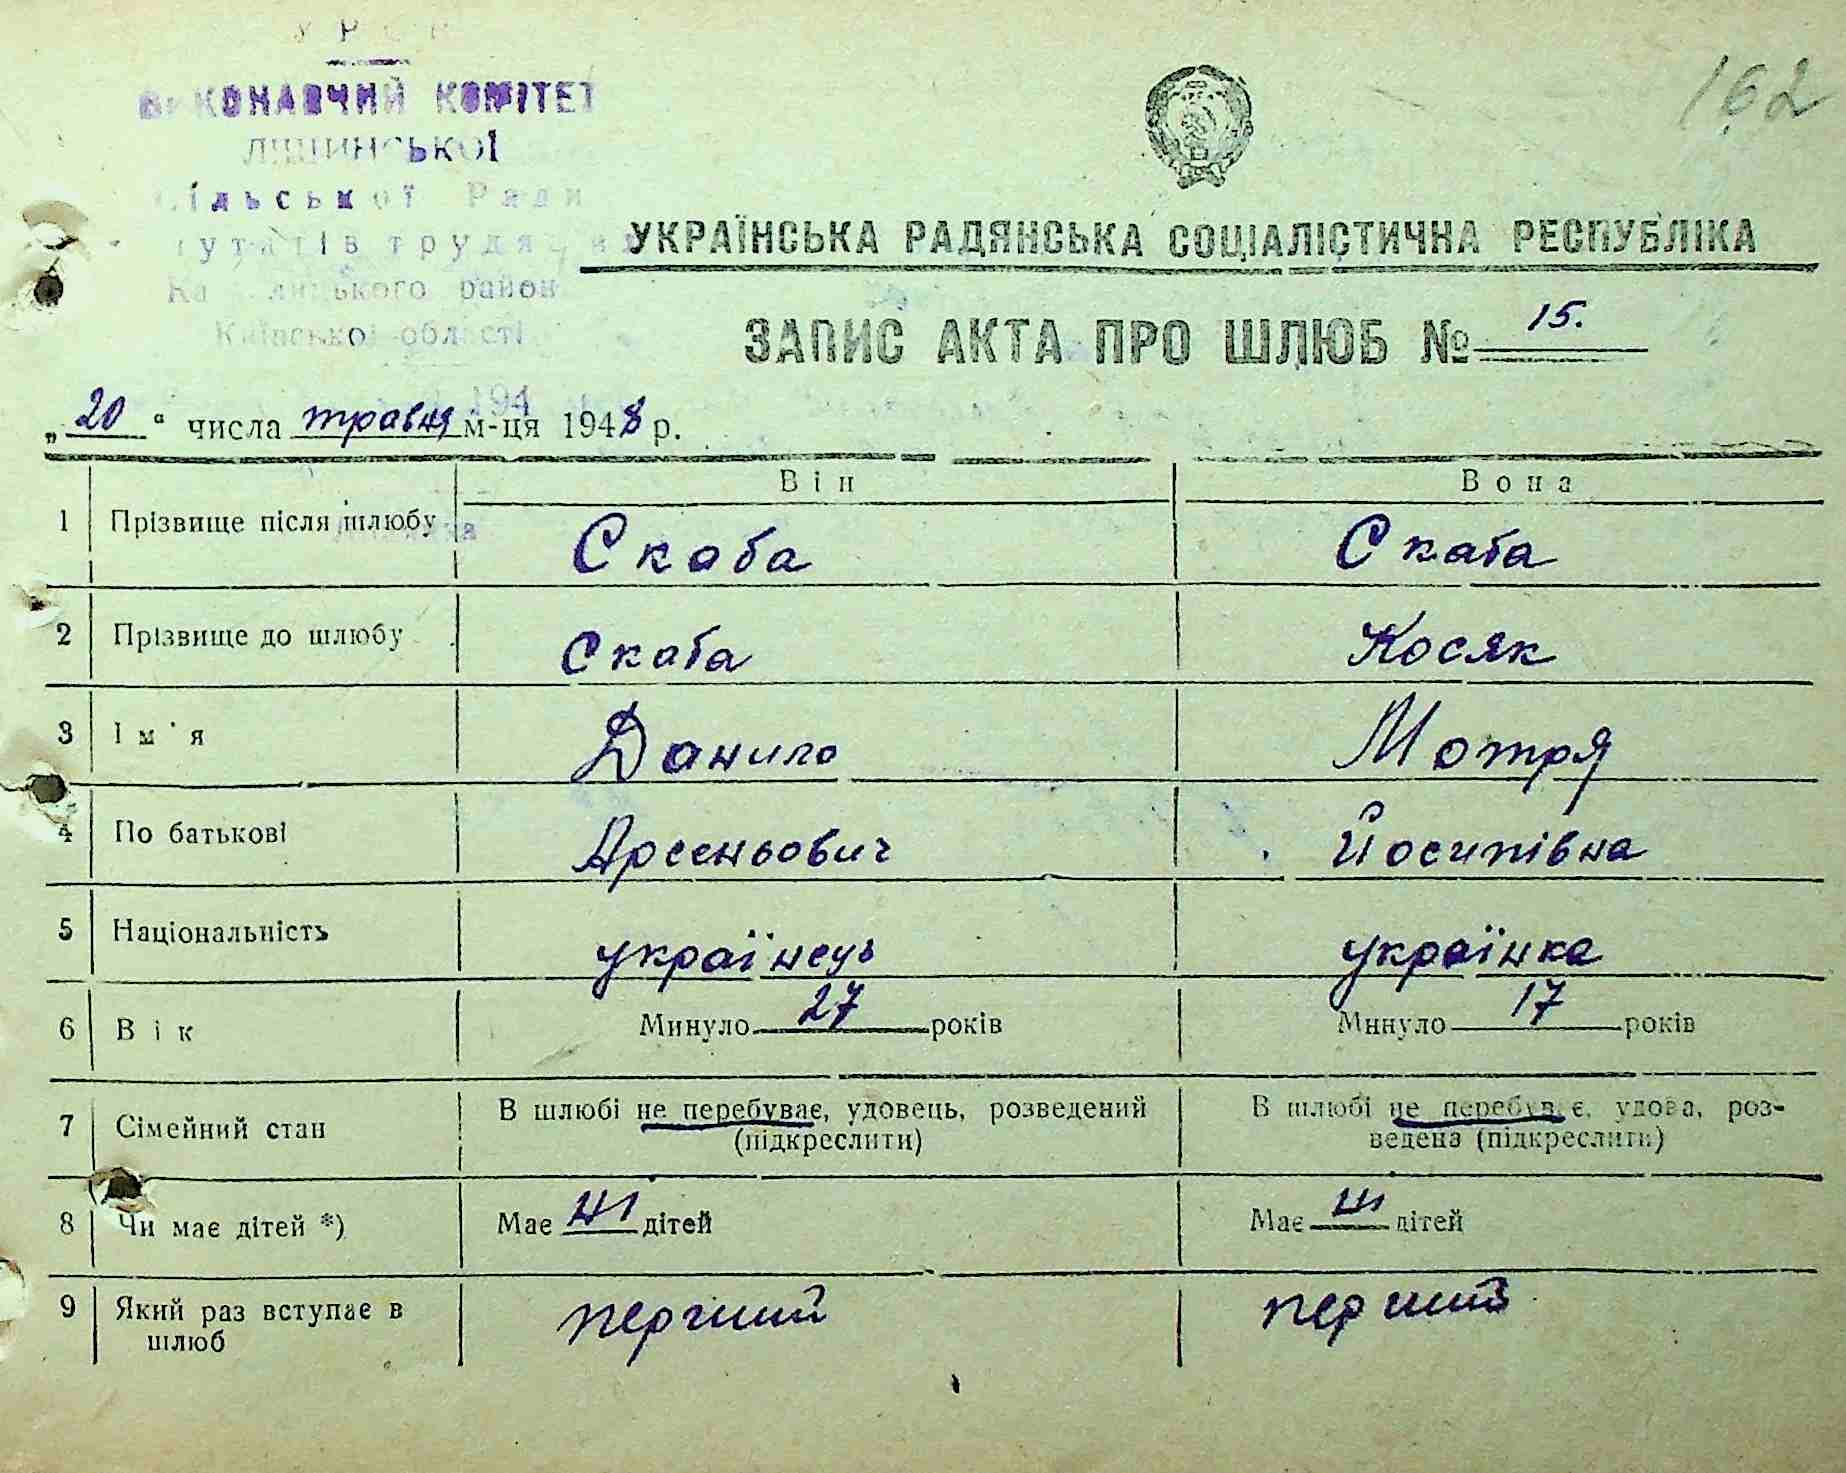 162
КОМІТЕТ
Ради
району
Київської області
УКРАЇНСЬКА РАДЯНСЬКА СОЦІАЛІСТИЧНА РЕСПУБЛІКА
ЗАПИС АКТА ПРО ШЛЮБ № 15.
„20“ числа травня м-ця 1948 р.
Він Вона
1 Прізвище після шлюбу Скаба Скаба
2 Прізвище до шлюбу Скаба Косяк
3 Ім'я Данило Мотря
4 По батькові Арсеньович Йосипівна
5 Національність українець українка
6 Вік Минуло 27 років Минуло 17 років
7 Сімейний стан В шлюбі не перебуває, удовець, розведений (підкреслити) В шлюбі не перебуває, удова, роз-
ведена (підкреслити)
8 Чи має дітей *) Має ні дітей Має ні дітей
9 Який раз вступає в перший перший
шлюб